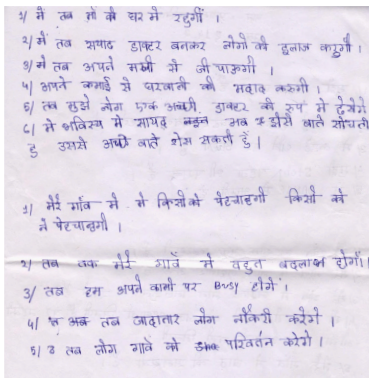 1/ में तब माँ के घर मे रहुगीं ।
2/ में तब सायद डाक्टर बनकर लोगों को इलाज करुगी ।
3/ में तब अपने मर्जी से जी पाऊगी ।
4/ अपने कमाई से घरवालो की मदाद करुगी ।
5/ तब मुझे लोग एक अच्छी डाक्टर की रुप मे देखेगे
6/ में भविस्य मे सायद अब जैसी बाते सोचती
हु उससे अच्छी बाते सोच सकती हुँ ।
1/ मेरे गाँव मे मे किसीको पेहचानुगी किसी को
ने पेहचानुगी ।
2/ तब तक मेरे गावँ मे बहुत बदलाव होगा ।
3/ तब हम अपने कामो पर Busy होगे ।
4/ अब तब जादातार लोग नौकरी करेगे ।
5/ तब लोग गावँ को परिवर्तन करेगे ।